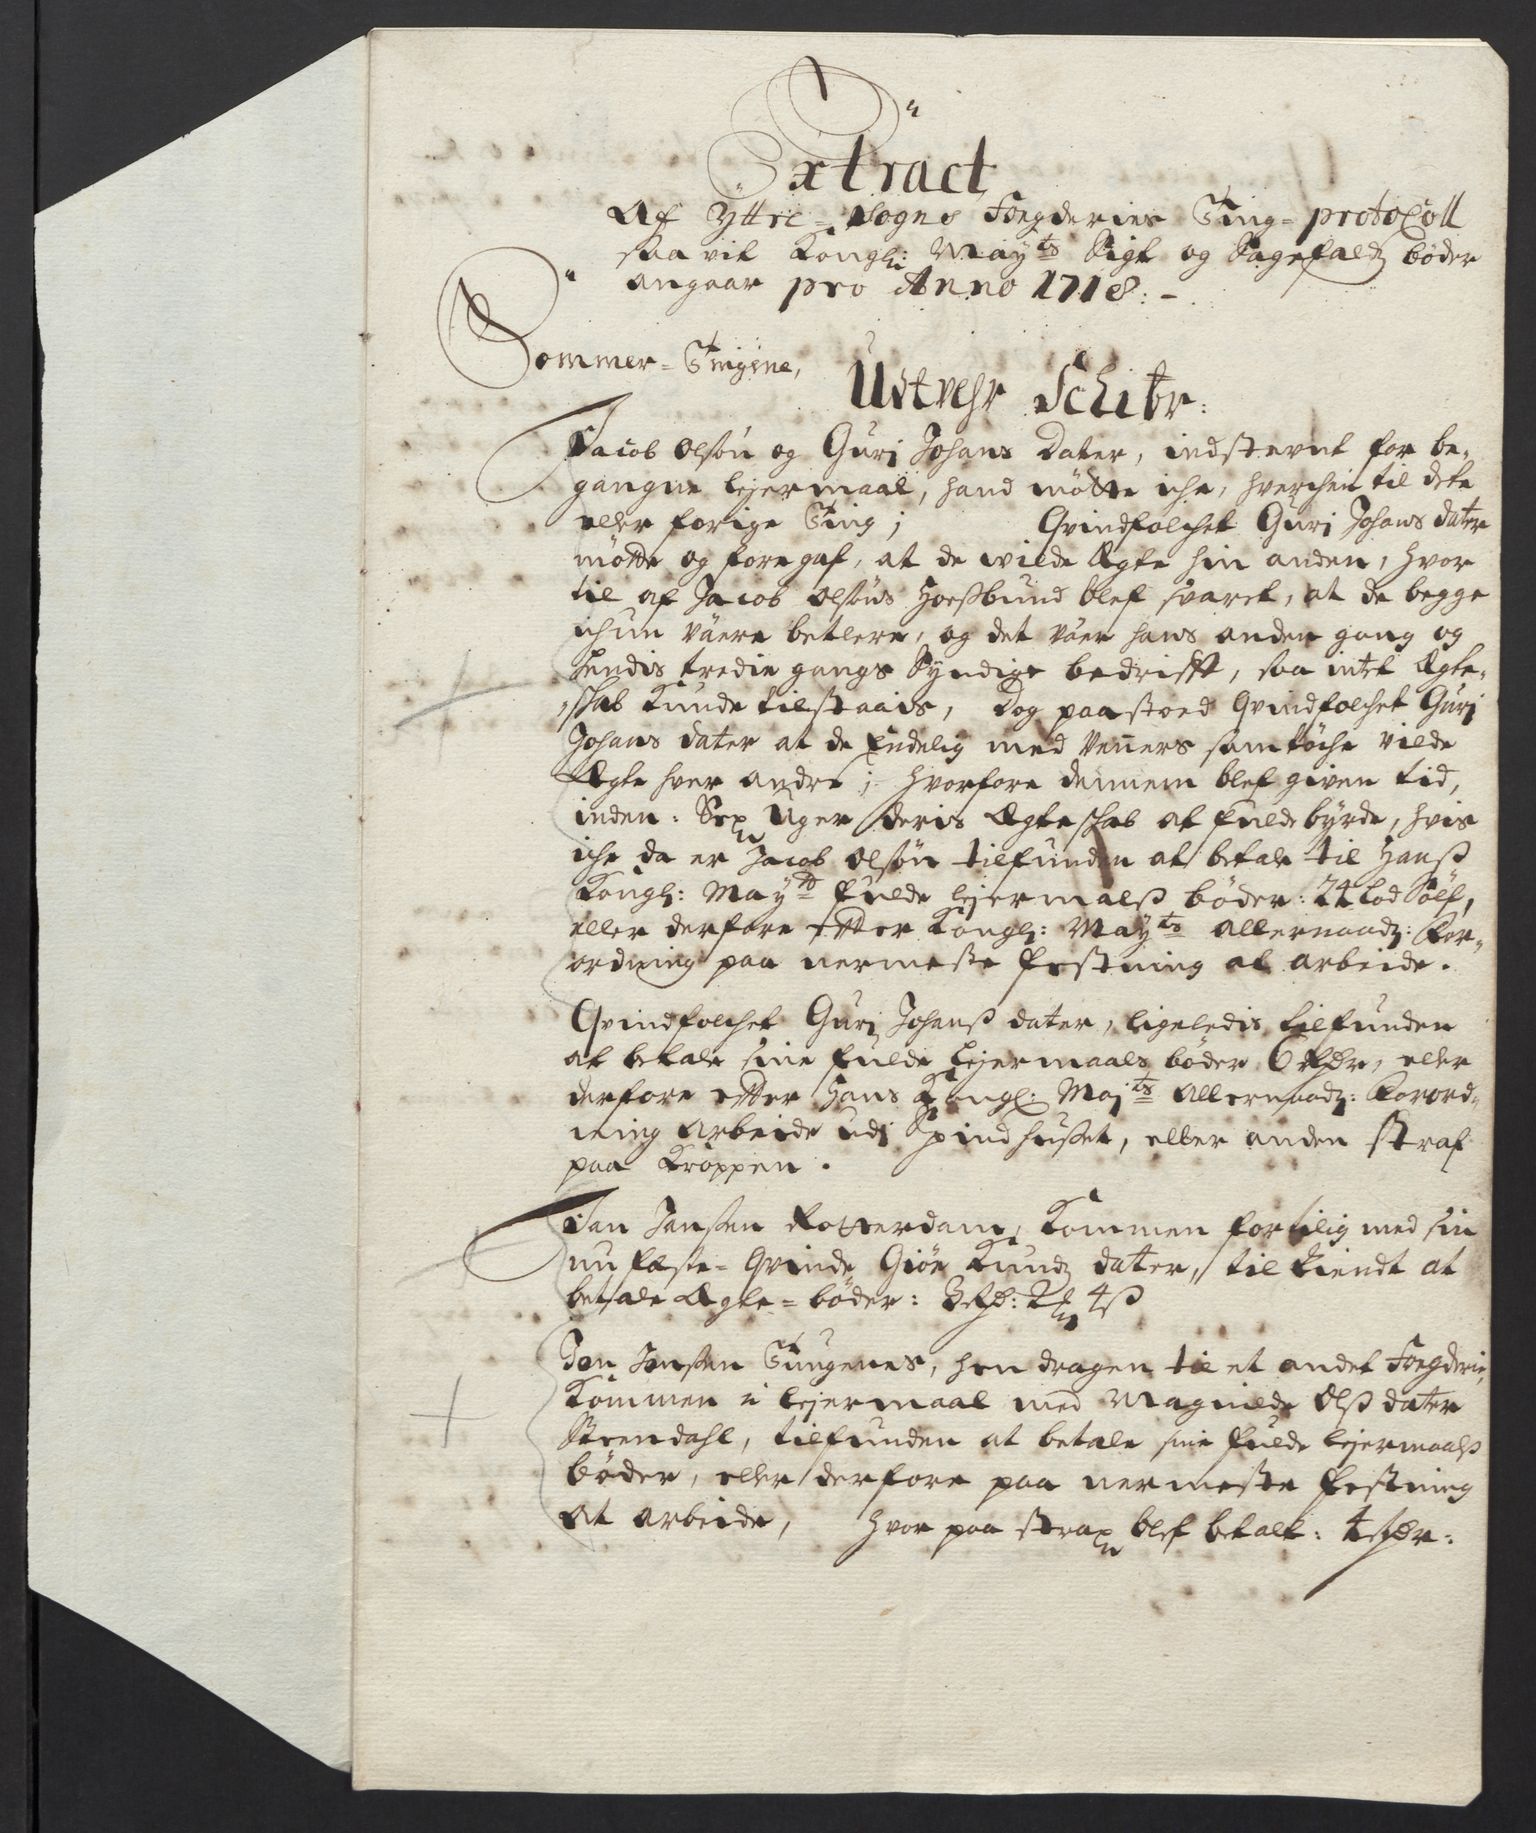 Extract
Af Yttre-Sogns Fogderies Ting-protocoll
saavit Kongl: May^ts Sigt og Sagefaldz bøder
angaar pro Anno 1718:-
Sommer-Tingene,
Udtvehr Schibr:
Jacob Olsøn og Guri Johans Dater, indstevnt for be-
gangne lejermaal, hand møtte iche, hverchen til dete
eller forige Ting; Qvindfolchet Guri Johans dater
møtte og foregaf, at de wilde Ægte hin anden, hvor
til af Jacob Olsøns Hoesbund blef svaret, at de begge
ichun vaere betlere, og det vaer hans anden gang og
hendis tredie gangs Syndige bedrifft, saa intet Ægte-
schab kunde tilstaais, Dog paastoed Qvindfolchet Guri
Johans dater at de Endelig med Venners samtøche vilde
Ægte hver andre; hvorfore dennem blef given tid,
inden: Sex Uger deris Ægteschab at fuldebyrde, hvis
iche da er Jacob Olsøn tilfunden at betale til Hanß
Kongl: May^ts fulde lejermalß bøder: 24 Lod Sølf,
eller derfore etter Kongl: May^ts allernaadz: For-
ordning paa nermeste festning at arbeide.
Qvindfolchet Guri Johanß dater, ligeledis tilfunden
at betale sine fulde lejermaals bøder 6 Rdr, eller
derfore etter Hans Kongl: Maj^ts Allernaadz: Forord-
ning arbeide udj Spindhuset, eller anden straf
paa Kroppen.
Jan Jansen Rotterdam, kommen fortilig med sin
nu feste-Qvinde Giøe Knudz dater, tilkiendt at
betale Ægte-bøder: 3 Rd: 2 4 ß
Jon Jensen Tungenes, hen dragen til et andet Fogderie,
kommen i lejermaal med Magnilde Olß dater
Steendahl, tilfunden at betale sine fulde lejermaalß
bøder, eller derfore paa nermeste festning
at arbeide, hvor paa strax blef betalt: 4 Rdr: